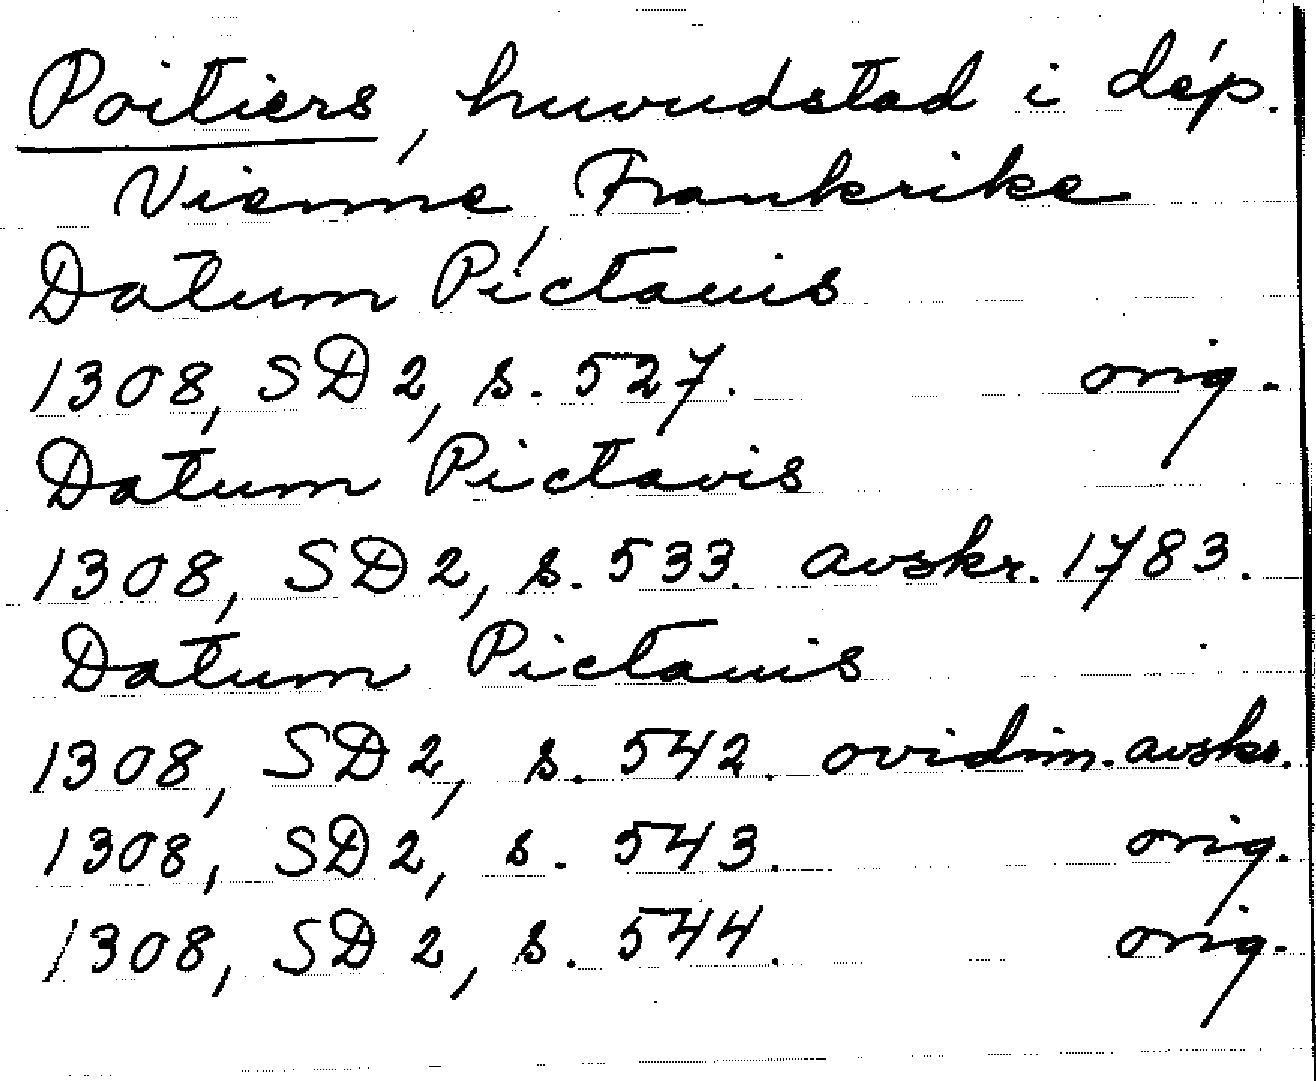 Poitiers, huvudstad i dép.
Vienne, Frankrike
Datum Pictauis
1308, SD 2, s. 527. orig.
Datum Pictavis
1308, SD 2, s. 533. avskr. 1783.
Datum Pictauis
1308, SD 2, s. 542. ovidim. avskr.
1308, SD 2, s. 543. orig.
1308, SD 2, s. 544. orig.